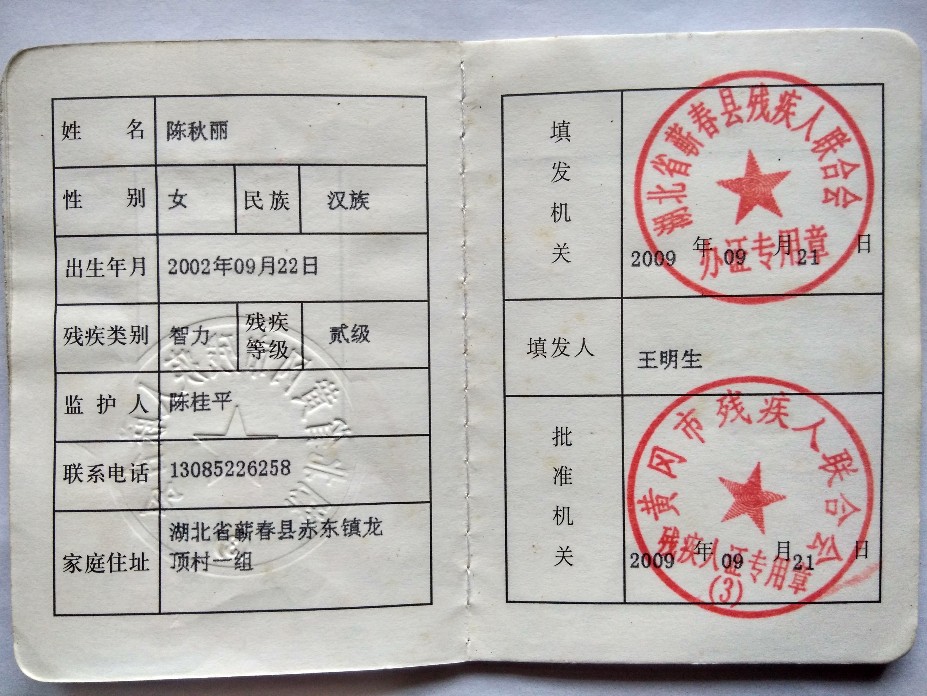 姓 名 陈秋丽
性 别 女 民族 汉族
出生年月 2002年09月22日
残疾类别 智力 残疾等级 贰级
监护人 陈桂平
联系电话 13085226258
家庭住址 湖北省蕲春县赤东镇龙
顶村一组
填发机关
湖北省蕲春县残疾人联合会
办证专用章
2009年09月21日
填发人 王明生
批准机关
黄冈市残疾人联合会
残疾人证专用章
(3)
2009年09月21日